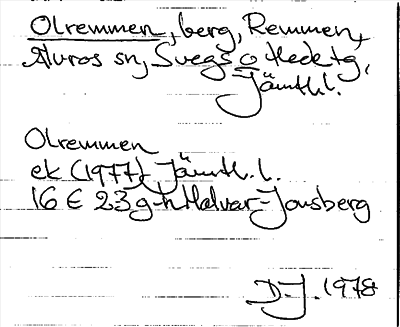 Olremmen, berg, Remmen,
Älvros sn, Svegs o Hede tg,
Jämtl.
Olremmen
ek (1977) Jämtl. l.
16 E 23 g-h Halvar-Jonsberg
D-J. 1978